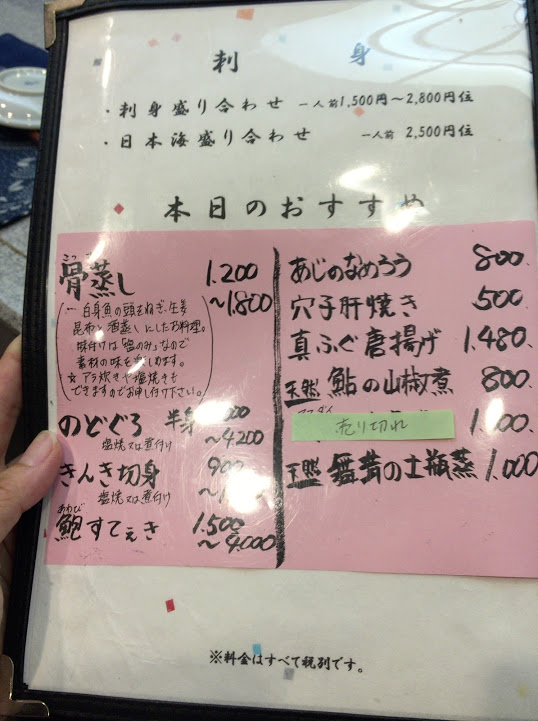 刺身
・刺身盛り合わせ 一人前1,500円～2,800円位
・日本海盛り合わせ 一人前 2,500円位
本日のおすすめ
骨蒸し 1.200
～1.800
白身魚の頭をねぎ、生姜
昆布と酒蒸しにしたお料理。
味付けは「塩のみ」なので
素材の味を楽しめます。
☆アラ炊きや塩焼きも
できますのでお申し付け下さい。
のどぐろ 半身
～4200
塩焼又は煮付け
きんき切身 900
塩焼又は煮付け
あわび
鮑すてぇき 1.500
～4.000
あじのなめろう 800.
穴子肝焼き 500
真ふぐ唐揚げ 1.480.
天然 鮎の山椒煮 800
売り切れ
天然 舞茸の土瓶蒸 1.000
※料金はすべて税別です。